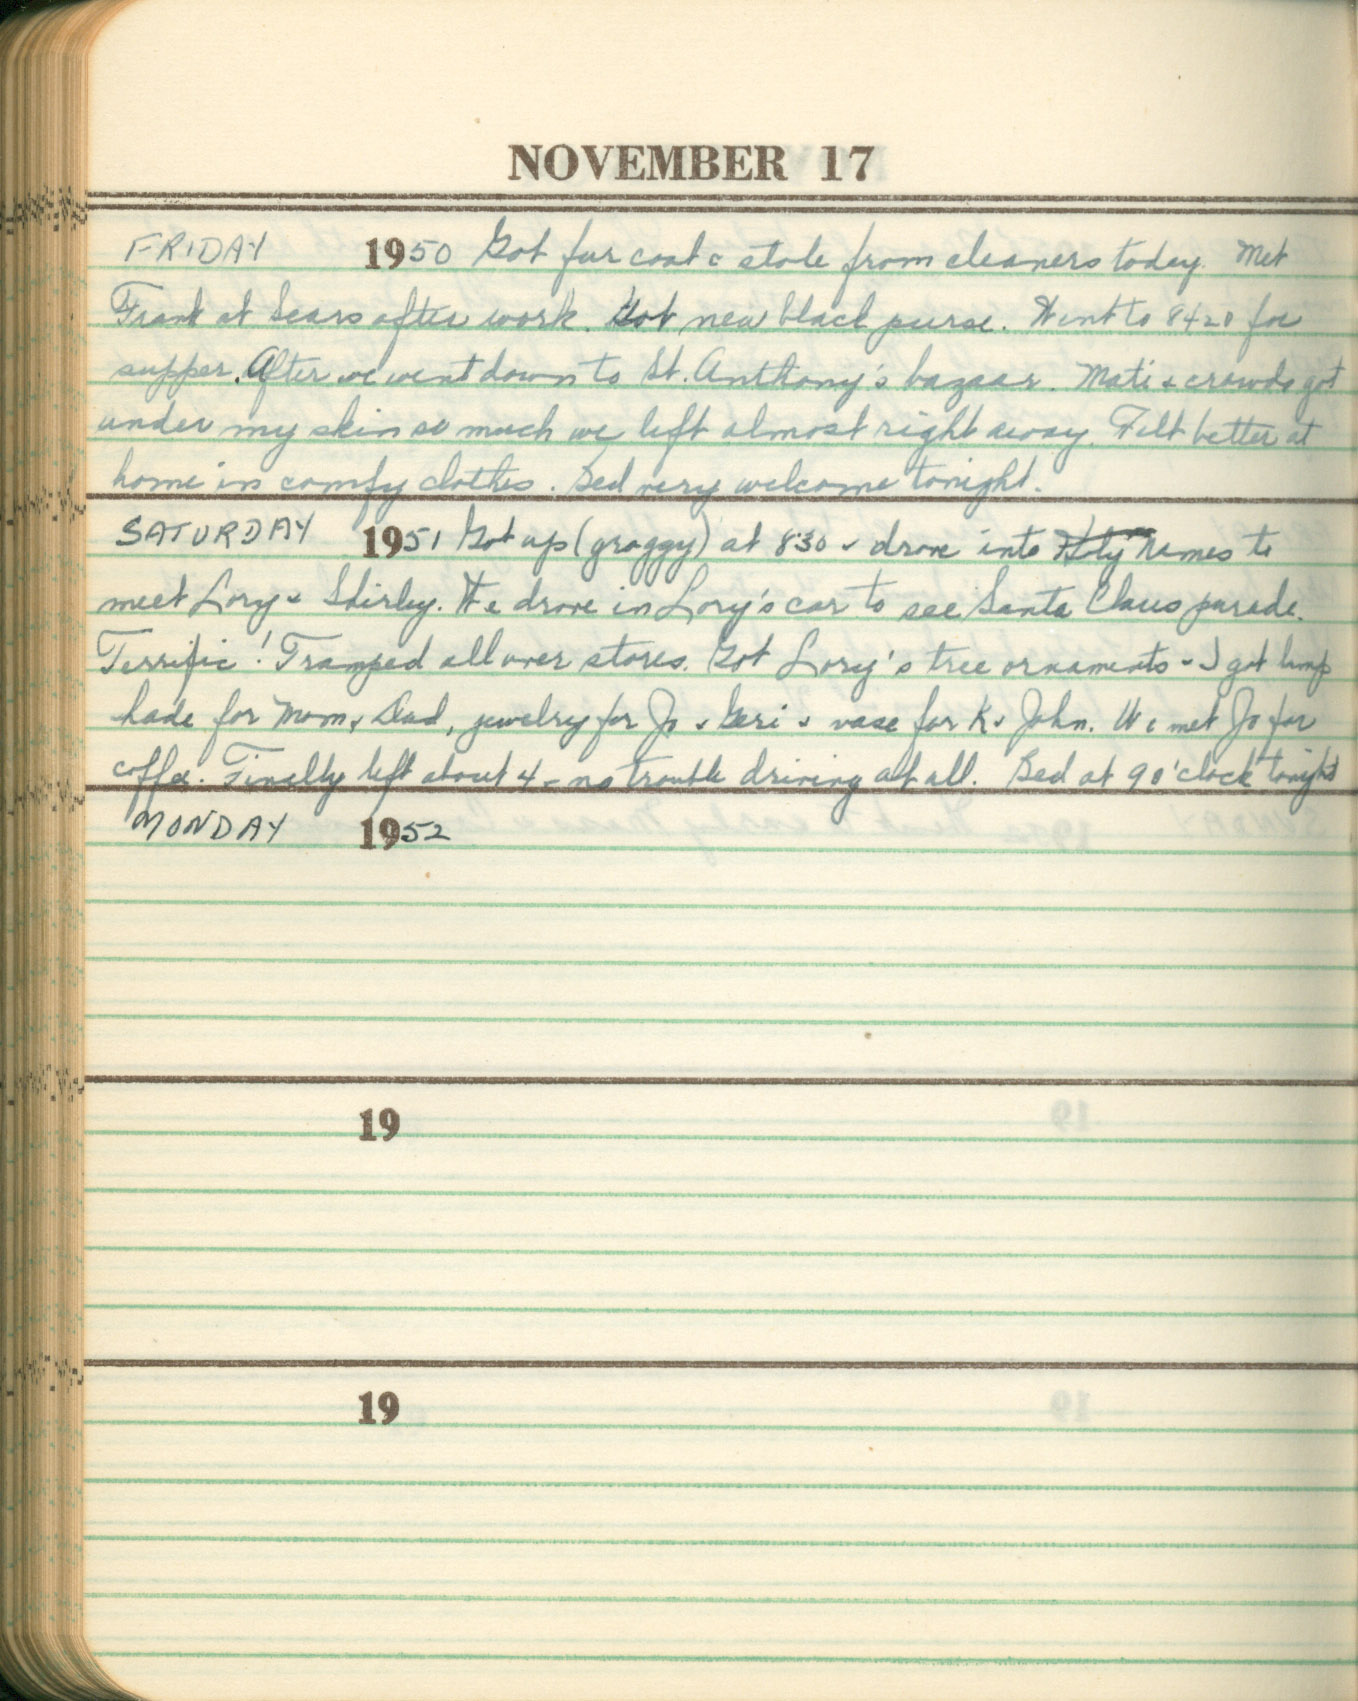 NOVEMBER 17
FRIDAY 1950 Got fur coat c stole from cleaners today. Met
Frank at Sears after work. Got new black purse. Went to 8420 for
supper. After we went down to St. Anthony's bazaar. Mati & crowds got
under my skin so much we left almost right away. Felt better at
home in comfy clothes. Bed very welcome tonight.
SATURDAY 1951 Got up (groggy) at 830 & drove into Holy Names to
meet Lory & Shirley. We drove in Lory's car to see Santa Claus parade.
Terrific! Tramped all over stores. Got Lory's tree ornaments - I got lamp
hade for Mom & Dad, jewelry for Jo & Geri & vase for K & John. We met Jo for
coffee. Finally left about 4 - no trouble driving at all. Bed at 9 o'clock tonight
MONDAY 1952
19
19